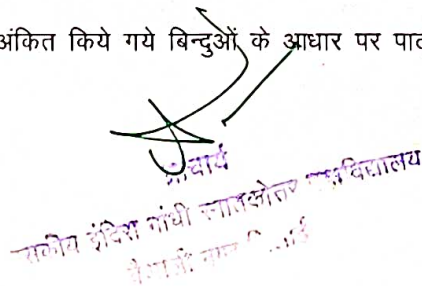 अंकित किये गये बिन्दुओं के आधार पर पाठ
प्राचार्य
इंदिरा गांधी स्नातकोत्तर महाविद्यालय